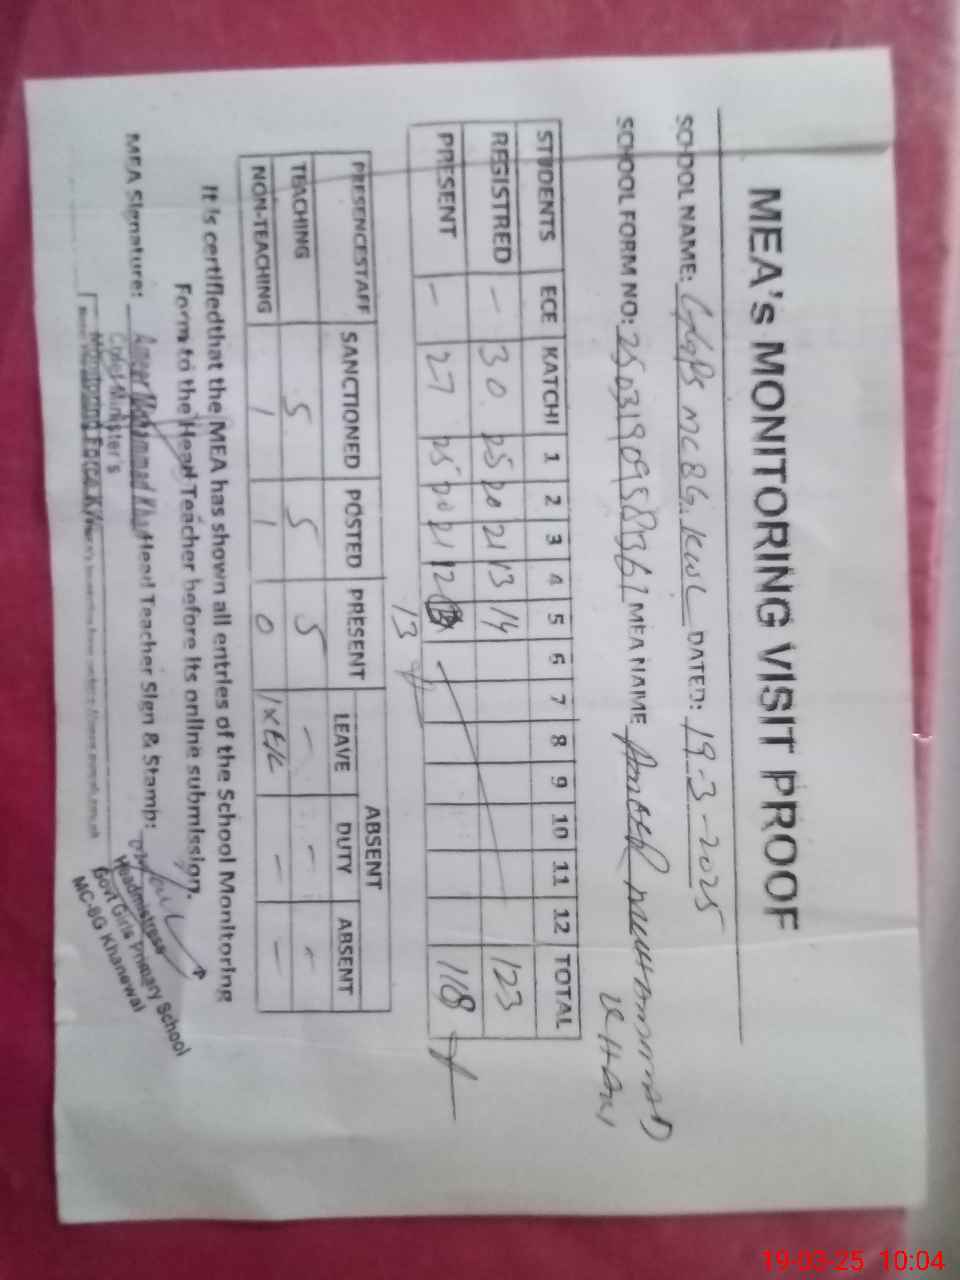 MEA's MONITORING VISIT PROOF
SCHOOL NAME: GGPS MC 8G. KWL DATED: 19-3-2025
SCHOOL FORM NO: MEA NAME MUHAMMAD
KHAN
STUDENTS ECE KATCHI 1 2 3 4 5 6 7 8 9 10 11 12 TOTAL
REGISTRED - 30 25 20 21 13 14 123
PRESENT - 27 25 20 21 12 118
13
PRESENCESTAFF SANCTIONED POSTED PRESENT ABSENT
LEAVE DUTY ABSENT
TEACHING 5 5 5 - - -
NON-TEACHING 1 1 0 - -
It is certifiedthat the MEA has shown all entries of the School Monitoring
Form to the Head Teacher before its online submission.
MEA Signature: Muhammad Khan Head Teacher Sign & Stamp:
Chief Minister's
Monitoring Force
Headmistress
Govt Girls Primary School
MC-8G Khanewal
19-03-25 10:04